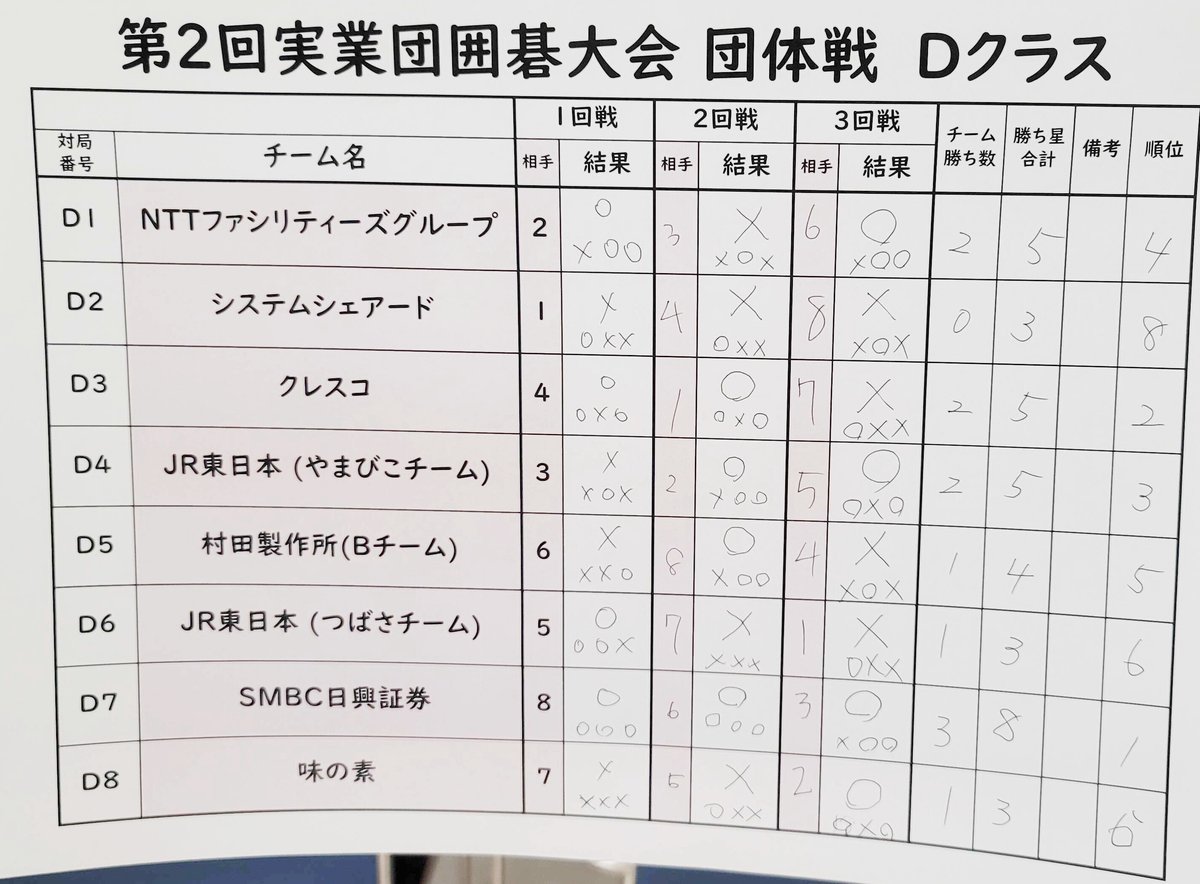 第2回実業団囲碁大会 団体戦 Dクラス
対局番号 チーム名 1回戦 相手 結果 2回戦 相手 結果 3回戦 相手 結果 チーム勝ち数 勝ち星合計 備考 順位
D1 NTTファシリティーズグループ 2 ○ ×○○ 3 × ×○× 6 ○ ×○○ 2 5 4
D2 システムシェアード 1 × ○×× 4 × ○×× 8 × ×○× 0 3 8
D3 クレスコ 4 ○ ○×○ 1 ○ ○×○ 7 × ○×× 2 5 2
D4 JR東日本 (やまびこチーム) 3 × ×○× 2 ○ ×○○ 5 ○ ○×○ 2 5 3
D5 村田製作所(Bチーム) 6 × ××○ 8 ○ ×○○ 4 × ×○× 1 4 5
D6 JR東日本 (つばさチーム) 5 ○ ○○× 7 × ××× 1 × ○×× 1 3 6
D7 SMBC日興証券 8 ○ ○○○ 6 ○ ○○○ 3 ○ ×○○ 3 8 1
D8 味の素 7 × ××× 5 × ○×× 2 ○ ○×○ 1 3 6